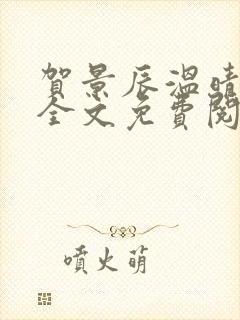 賀景辰溫晴
全文免費閱
噴火萌